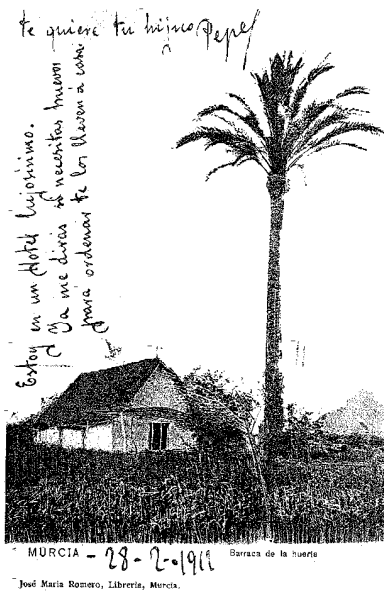 te quiere tu hijuco Pepe
Estoy en un Hotel lujosísimo.
Ya me dirás si necesitas huevos
para ordenar te los lleven á casa
MURCIA - 28-2-1911 Barraca de la huerta
José María Romero, Librería, Murcia.